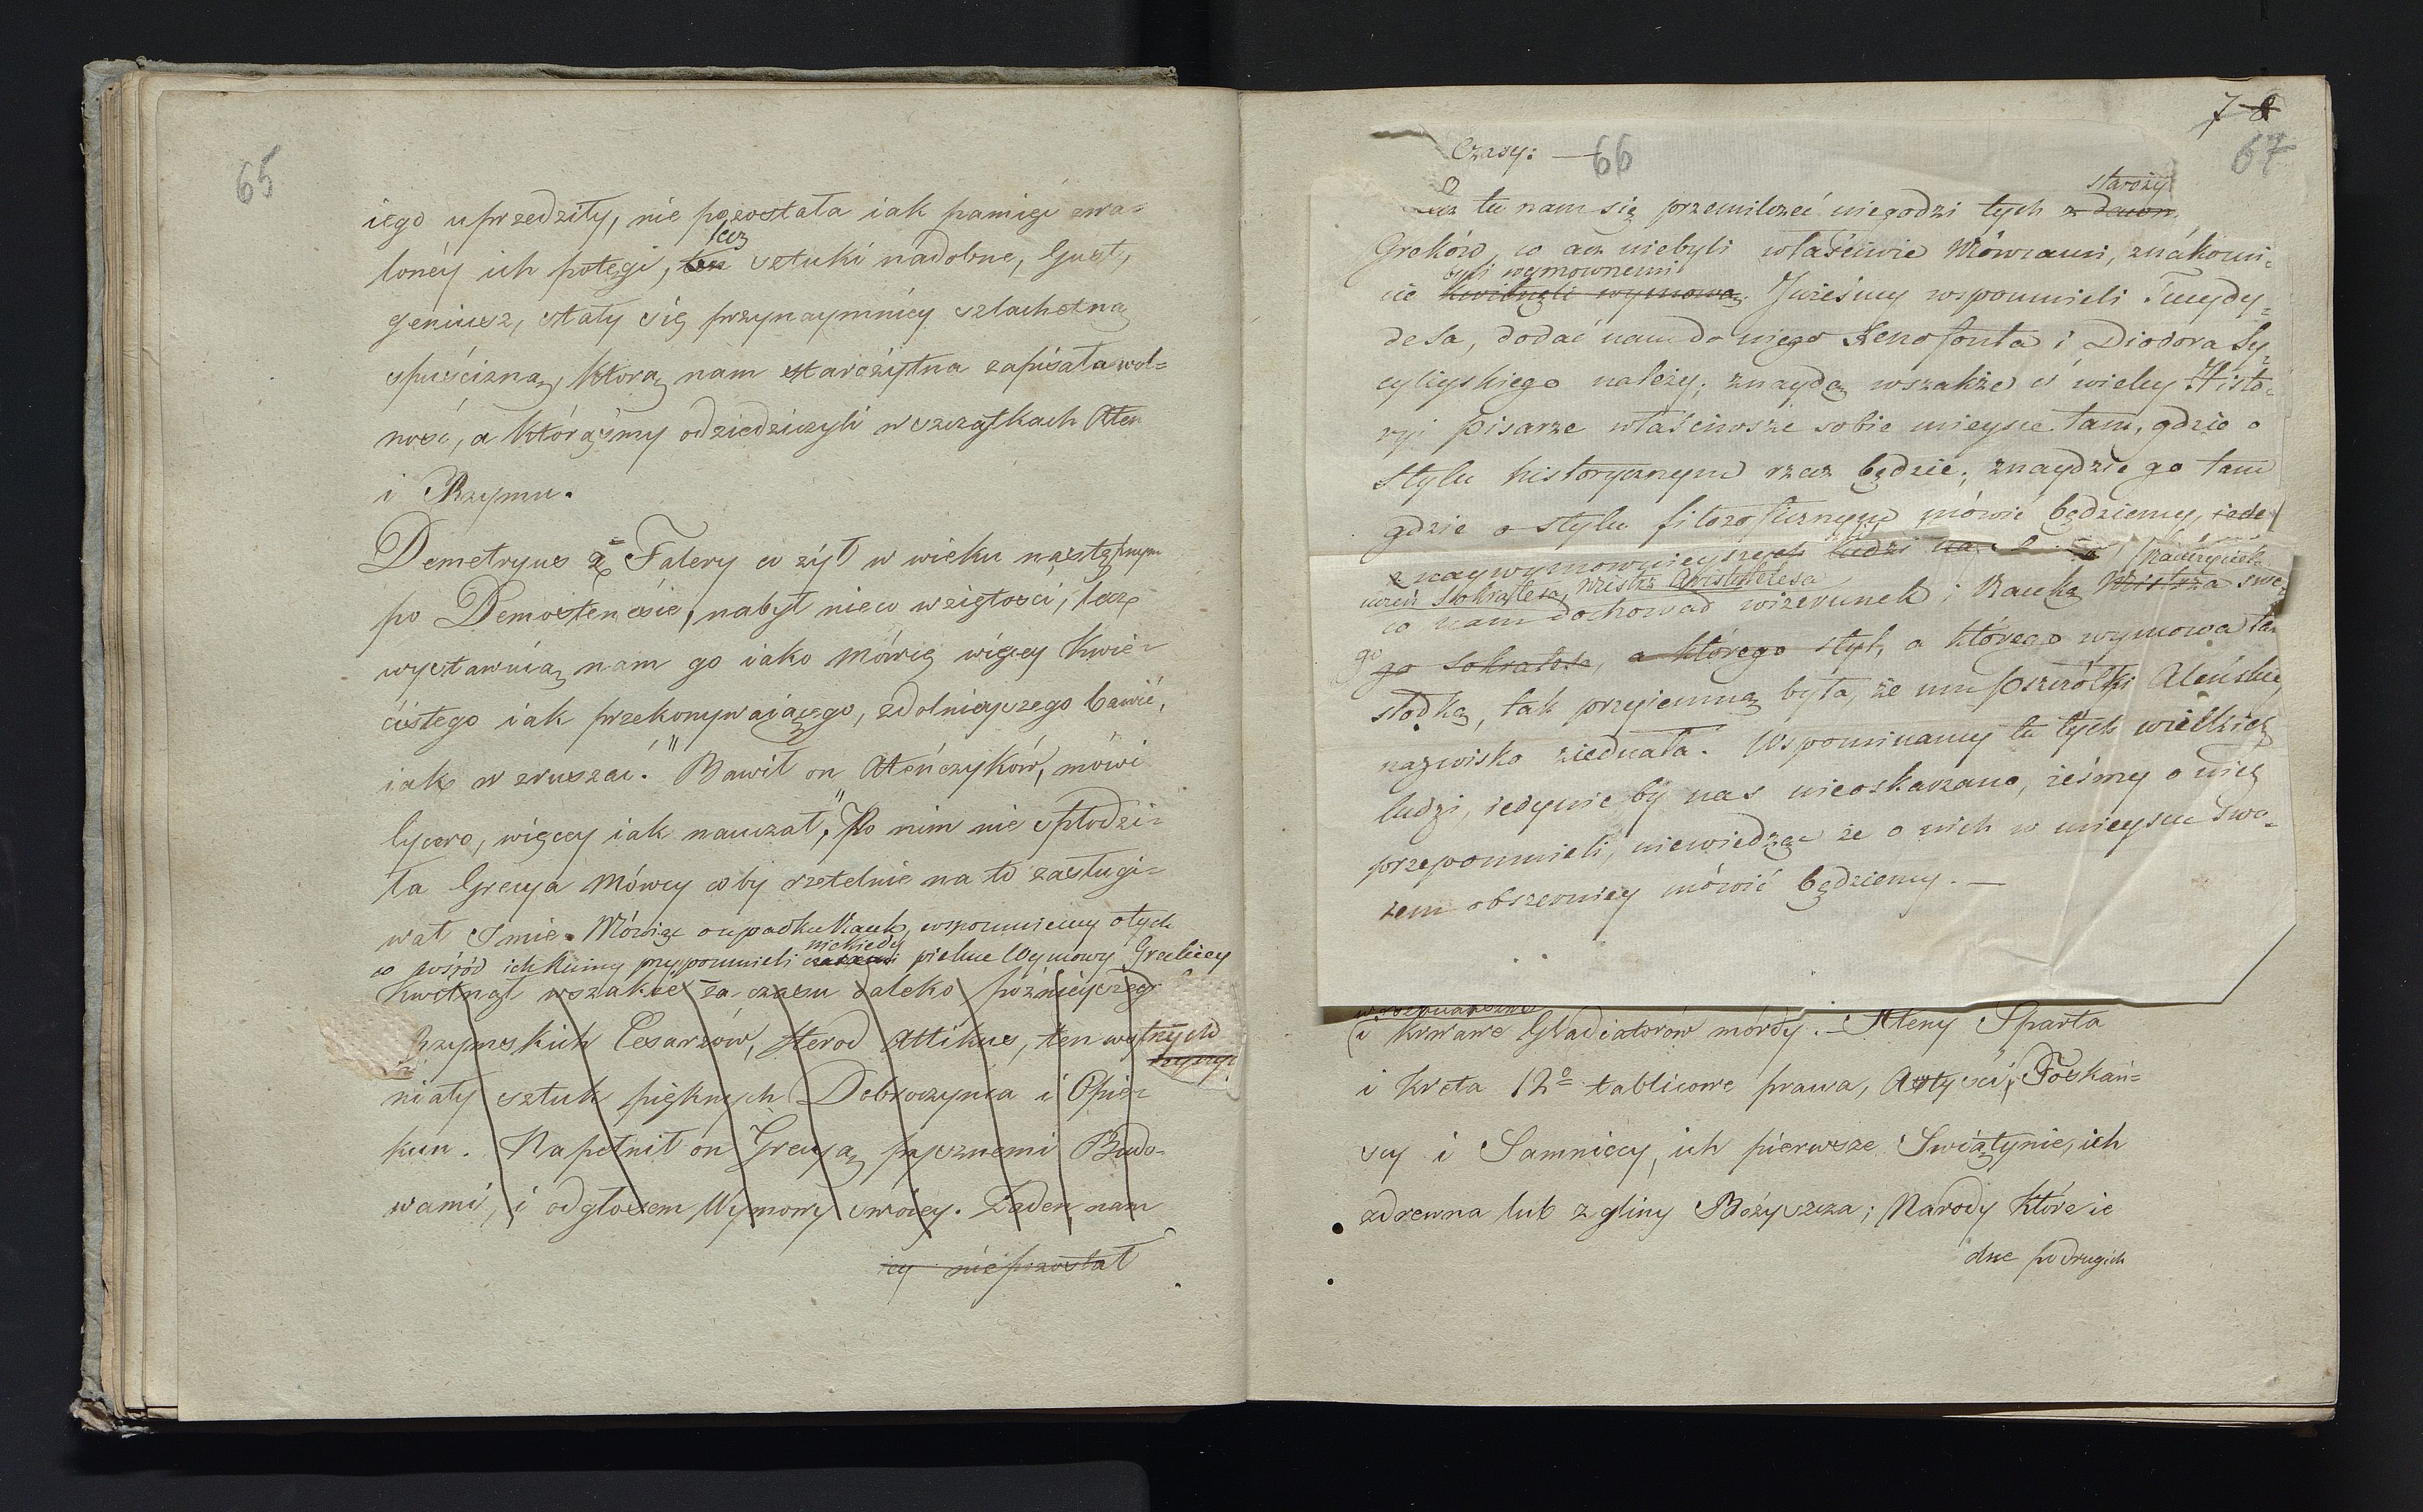 65
iego uprzedziły, nie pozostała iak pamięć zwa-
lecz
lonéy ich potęgi, ten sztuki nadobne, Gust,
geniusz, stały się przynaymniéy szlachetną
spuścizną, którą nam starożytna zapisała wol-
ność, a którąśmy odziedziczyli w szczątkach Aten
i Rzymu.
Demetryus z Falery co żył w wieku następnym
po Demostenesie, nabył nieco wziętości, lecz
wystawuią nam go iako mówcę więcey kwie-
cistego iak przekonywaiącego, zdolnieyszego bawić,
iak wzruszać. "Bawił on Ateńczyków, mówi
Cycero, więcey iak nauczał." Po nim nie spłodzi-
ła Grecya Mówcy coby rzetelnie na to zasługi-
wał Imie. Mówiąc o upadku Nauk, wspomniemy o tych
niekiedy
co pośród ich Ruiny przypomnieli czasami piękne Wymowy Greckiey
Kwitnął wszakże za czasu daleko późnieyszych
Rzymskich Cesarzów, Herod Attikus, ten wspa-
niały sztuk pięknych Dobroczyńca i Opie-
kun. Napełnił on Grecyą pysznemi Budo-
wami, i odgłosem Wymowy swoiey. Żaden nam
iey nie pozostał
7 8
67
Czasy: — 66
staroży
Lecz tu nam się przemilczeć niegodzi tych z dawn.
Greków, co acz niebyli właściwie Mówcami, znákomi-
byli wymownemi
cie kwitnęli wymową. Jużeśmy wspomnieli Tucydy-
desa, dodać nam do niego Xenofonta i Diodora Sy-
cyliyskiego należy; znaydą wszakże ci wielcy Histo-
ryi Pisarze właściwsze sobie mieysce tam, gdzie o
stylu historycznym rzecz będzie; znaydzie go tam
gdzie o stylu filozoficznym mówić będziemy, iede
z naywymownieyszych ludzi na
uczeń Sokratesa, Mistrz Aristotelesa
Nauczyciela
co nam dochował wizerunek i Naukę Mistrza swe-
go
go Sokratesa, a którego styl, a którego wymowa tak
słodką, tak przyiemną była, że mu Pszczółki Ateńskiey
nazwisko ziednała. Wspominamy tu tych wielkich
ludzi, iedynie by nas nieoskarzano, żeśmy o nich
przepomnieli, niewiedząc że o nich w mieyscu swo-
iem obszerniey mówić będziemy. —
i krwawe Gladiatorów mórdy. — Ateny Sparta
i Kreta 12º tablicowe prawa, Artyści, Toskań-
scy i Samniccy, ich pierwsze Swiątynie, ich
z drewna lub z gliny Bożyszcza; Narody które ie
dne po drugich